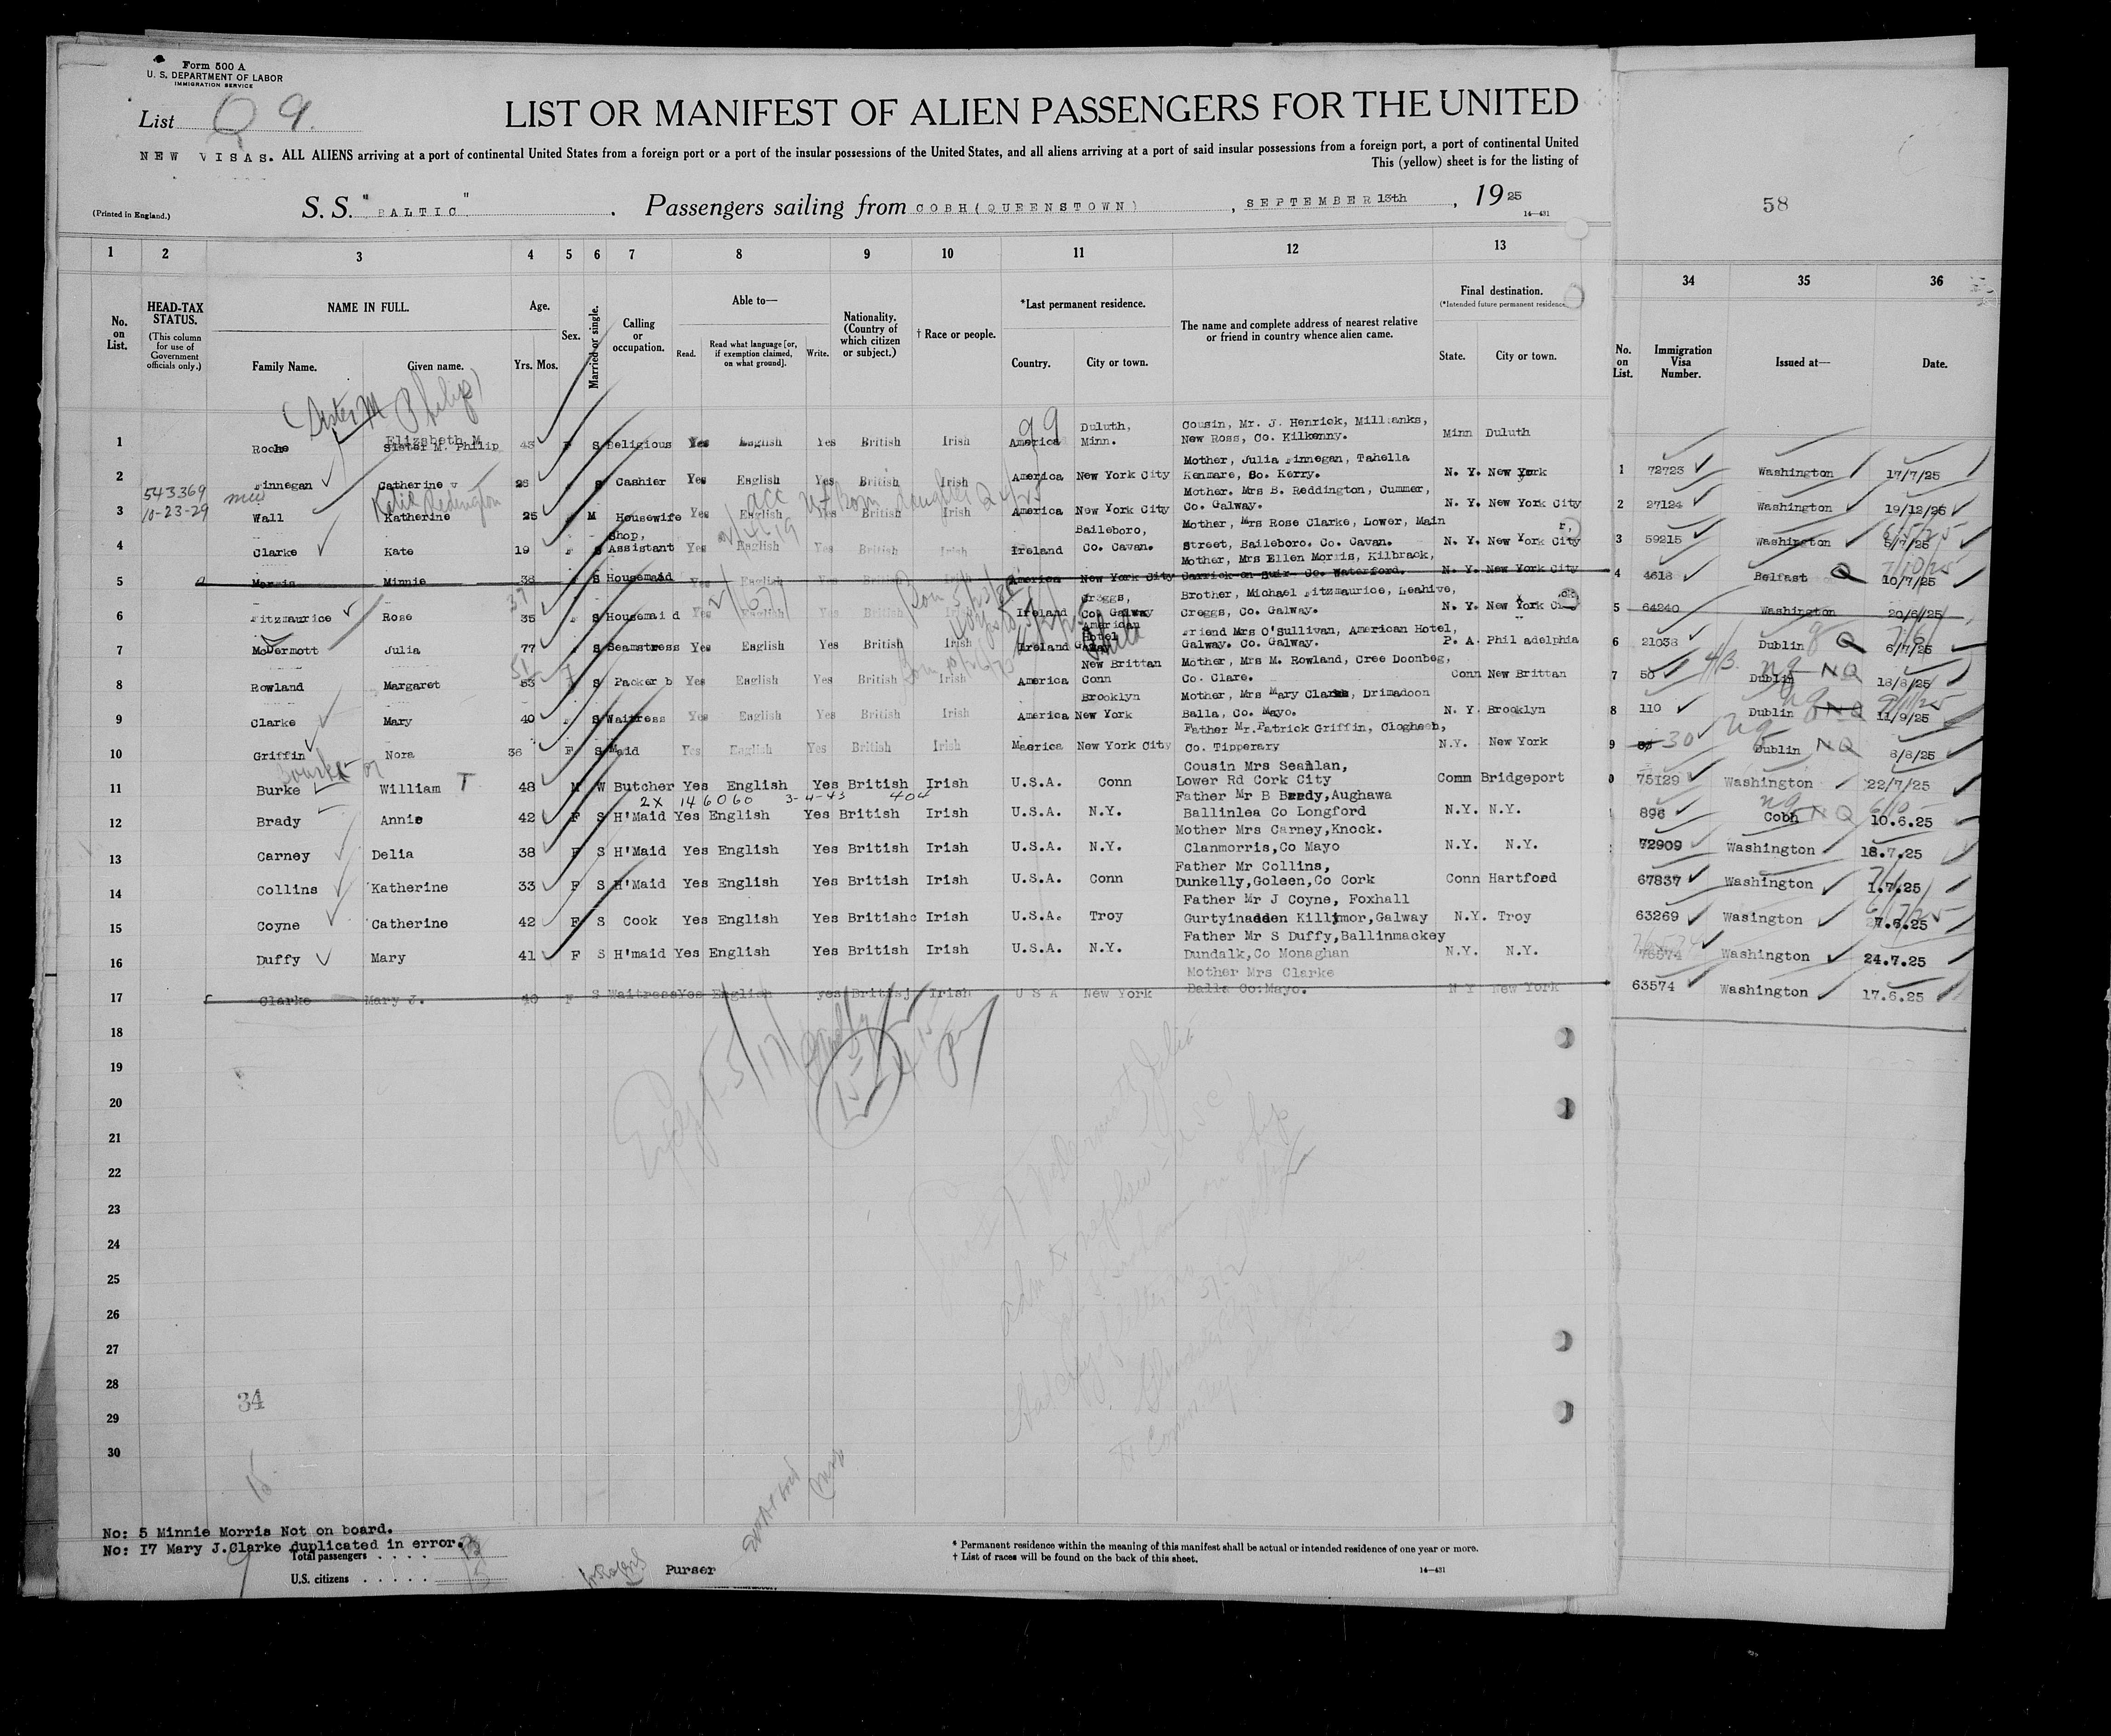 Form 500 A
U. S. DEPARTMENT OF LABOR
IMMIGRATION SERVICE
List Q 9.
LIST OR MANIFEST OF ALIEN PASSENGERS FOR THE UNITED
NEW VISAS. ALL ALIENS arriving at a port of continental United States from a foreign port or a port of the insular possessions of the United States, and all aliens arriving at a port of said insular possessions from a foreign port, a port of continental United
This (yellow) sheet is for the listing of
(Printed in England.)
S. S. "BALTIC". Passengers sailing from COBH(QUEENSTOWN), SEPTEMBER 13th, 1925
14—431
58
1 2 3 4 5 6 7 8 9 10 11 12 13 34 35 36
No. on List.
HEAD-TAX STATUS.
(This column for use of Government officials only.)
NAME IN FULL.
Family Name. Given name.
Age.
Yrs. Mos.
Sex.
Married or single.
Calling or occupation.
Able to—
Read. Read what language [or, if exemption claimed, on what ground]. Write.
Nationality. (Country of which citizen or subject.)
† Race or people.
*Last permanent residence.
Country. City or town.
The name and complete address of nearest relative or friend in country whence alien came.
Final destination.
(*Intended future permanent residence
State. City or town.
No. on List. Immigration Visa Number. Issued at— Date.
(Sister M Philip)
99
1 Roche Elizabeth M. Sister M. Philip 43 F S Religious Yes English Yes British Irish America Duluth, Minn. Cousin, Mr. J. Henrick, Millbanks, New Ross, Co. Kilkenny. Minn Duluth
2 Finnegan Catherine V 26 S Cashier Yes English Yes British Irish America New York City Mother, Julia Finnegan, Tahella Kenmare, Co. Kerry. N. Y. New York
543369
10-23-29
Katie Redington
3 Wall Katherine 25 M Housewife Yes English Yes British Irish America New York City Mother. Mrs B. Reddington, Cummer, Co. Galway. N. Y. New York City
4 Clarke Kate 19 S Shop, Assistant Yes English Yes British Irish Ireland Baileboro, Co. Cavan. Mother, Mrs Rose Clarke, Lower, Main Street, Baileboro. Co. Cavan. N. Y. New York City
5 Morris Minnie 38 S Housemaid Yes English Yes British Irish America New York City Mother, Mrs Ellen Morris, Kilbrack, Carrick-on-Suir Co. Waterford. N. Y. New York City
6 Fitzmaurice Rose 35 S Housemaid Yes English Yes British Irish Ireland Creggs, Co. Galway Brother, Michael Fitzmaurice, Leahive, Creggs, Co. Galway. N. Y. New York City
7 McDermott Julia 77 S Seamstress Yes English Yes British Irish Ireland American Hotel Galway Friend Mrs O'Sullivan, American Hotel, Galway. Co. Galway. P. A. Phil adelphia
8 Rowland Margaret 53 S Packer b Yes English Yes British Irish America New Brittan Conn Mother, Mrs M. Rowland, Cree Doonbeg, Co. Clare. Conn New Brittan
9 Clarke Mary 40 S Waitress Yes English Yes British Irish America Brooklyn New York Mother, Mrs Mary Clarke, Drimadoon Balla, Co. Mayo. N. Y. Brooklyn
10 Griffin Nora 36 F S Maid Yes English Yes British Irish Maerica New York City Father Mr. Patrick Griffin, Clogheen, Co. Tipperary N.Y. New York
Bourke or
11 Burke William T 48 M W Butcher Yes English Yes British Irish U.S.A. Conn Cousin Mrs Seanlan, Lower Rd Cork City Comm Bridgeport
2X 146060 3-4-43 404
12 Brady Annie 42 F S H'Maid Yes English Yes British Irish U.S.A. N.Y. Father Mr B Bredy,Aughawa Ballinlea Co Longford N.Y. N.Y.
13 Carney Delia 38 F S H'Maid Yes English Yes British Irish U.S.A. N.Y. Mother Mrs Carney,Knock. Clanmorris,Co Mayo N.Y. N.Y.
14 Collins Katherine 33 F S H'Maid Yes English Yes British Irish U.S.A. Conn Father Mr Collins, Dunkelly,Goleen,Co Cork Conn Hartford
15 Coyne Catherine 42 F S Cook Yes English Yes Britishc Irish U.S.A. Troy Father Mr J Coyne, Foxhall Gurtyinadden Killimor,Galway N.Y. Troy
16 Duffy Mary 41 F S H'maid Yes English Yes British Irish U.S.A. N.Y. Father Mr S Duffy,Ballinmackey Dundalk,Co Monaghan N.Y. N.Y.
17 Clarke Mary J. 40 F S Waitress Yes English yes Britisj Irish U S A New York Mother Mrs Clarke Balla Co:Mayo. N Y New York
18
19
20
21
22
23
24
25
26
27
28
29
30
1 72723 Washington 17/7/25
2 27124 Washington 19/12/25
3 59215 Washington 5/7/25
4 4618 Belfast Q 10/7/25
5 64240 Washington 20/6/25
6 21038 Dublin Q 6/7/25
7 50 Dublin NQ 18/8/25
8 110 Dublin NQ 11/9/25
9 30 Dublin NQ 6/8/25
75129 Washington 22/7/25
896 Cobh NQ 10.6.25
72909 Washington 18.7.25
67837 Washington 1.7.25
63269 Wasington 7.6.25
76574 Washington 24.7.25
63574 Washington 17.6.25
34
No: 5 Minnie Morris Not on board.
No: 17 Mary J.Clarke duplicated in error.
Total passengers
U.S. citizens
Purser
* Permanent residence within the meaning of this manifest shall be actual or intended residence of one year or more.
† List of races will be found on the back of this sheet.
14—431